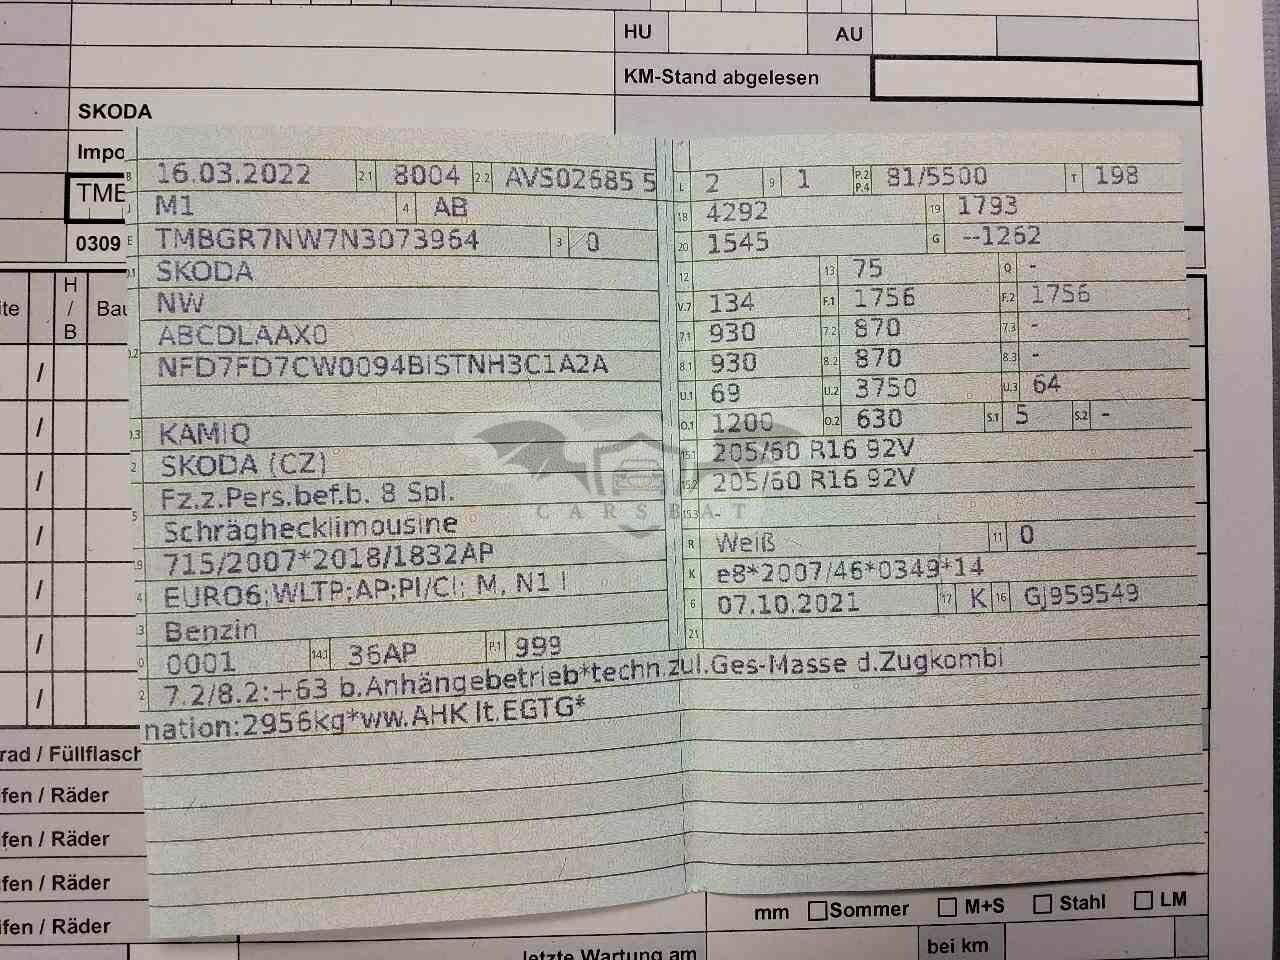 HU AU
KM-Stand abgelesen
SKODA
Impo
TMB
0309
ite H / B Bau
B 16.03.2022 2.1 8004 2.2 AVS02685 5
J M1 4 AB
E TMBGR7NW7N3073964 3 0
SKODA
NW
ABCDLAAX0
NFD7FD7CW0094BiSTNH3C1A2A
KAMIQ
2 SKODA (CZ)
Fz.z.Pers.bef.b. 8 Spl.
5 Schräghecklimousine
715/2007*2018/1832AP
EURO6;WLTP;AP;PI/CI; M, N1 I
3 Benzin
0001 14.1 36AP P.1 999
L 2 9 1 P.2 P.4 81/5500 T 198
18 4292 19 1793
20 1545 G --1262
12 13 75 Q -
V.7 134 F.1 1756 F.2 1756
7.1 930 7.2 870 7.3 -
8.1 930 8.2 870 8.3 -
U.1 69 U.2 3750 U.3 64
O.1 1200 O.2 630 S.1 5 S.2 -
15.1 205/60 R16 92V
15.2 205/60 R16 92V
15.3 -
R Weiß 11 0
K e8*2007/46*0349*14
6 07.10.2021 17 K 16 GJ959549
21
7.2/8.2:+63 b.Anhängebetrieb*techn.zul.Ges-Masse d.Zugkombi
nation:2956kg*ww.AHK lt.EGTG*
CARSBAT
rad / Füllflasch
ifen / Räder
ifen / Räder
ifen / Räder
ifen / Räder
mm Sommer M+S Stahl LM
letzte Wartung am bei km